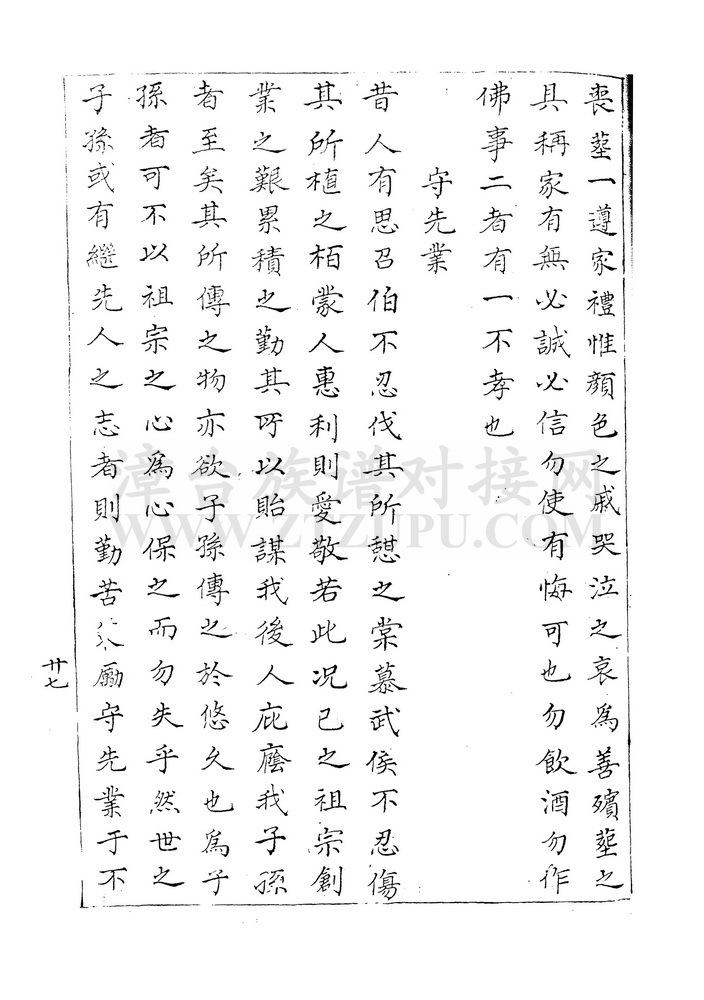 喪塟一遵家禮惟顏色之戚哭泣之哀為善殯塟之
具稱家有無必誠必信勿使有悔可也勿飲酒勿作
佛事二者有一不孝也
守先業
昔人有思召伯不忍伐其所憇之棠慕武侯不忍傷
其所植之栢蒙人惠利則愛敬若此况已之祖宗創
業之艱累積之勤其所以貽謀我後人庇廕我子孫
者至矣其所傳之物亦欲子孫傳之於悠久也為子
孫者可不以祖宗之心為心保之而勿失乎然世之
子孫或有繼先人之志者則勤苦勵守先業于不
廿七
漳台族谱对接网
WWW.ZTZUPU.COM